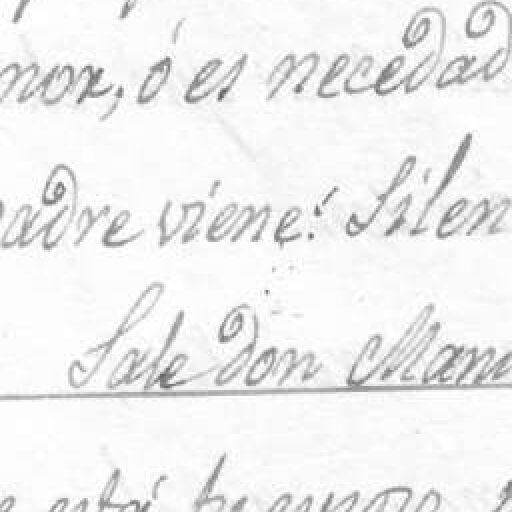 nor, ó es necedad
adre viene! Silen
Sale don Manu
está